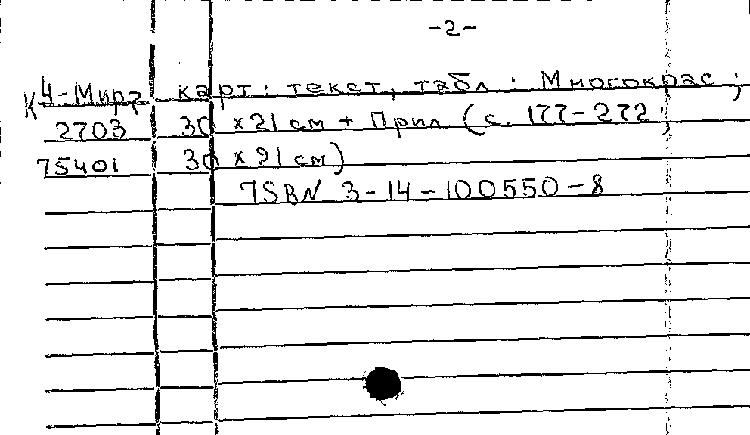 -2-
К4-Мир7 карт: текст, табл : Многокрас ;
2703 30 x 21 см + Прил (с. 177-272 ;
75401 30 x 21 см)
ISBN 3-14-100550-8